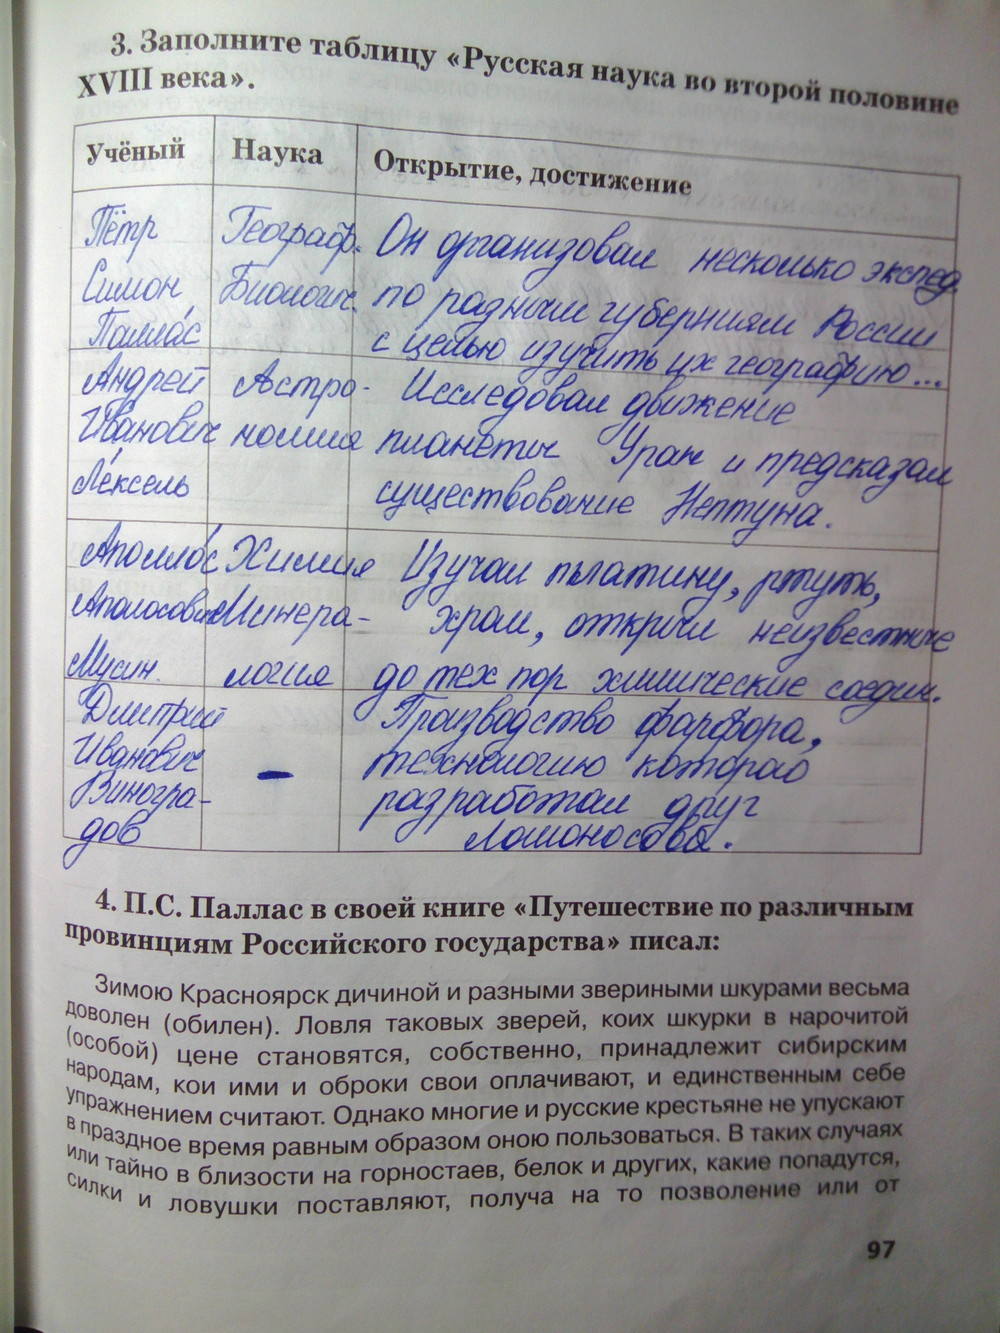 3. Заполните таблицу «Русская наука во второй половине
XVIII века».
Учёный Наука Открытие, достижение
Пётр Географ. Он организовал несколько экспед.
Симон Биологич. по разным губерниям России
Паллáс с целью изучить их географию...
Андрей Астро- Исследовал движение
Иванович номия планеты Уран и предсказал
Ле́ксель существование Нептуна.
Аполло́с Химия Изучал платину, ртуть,
Аполосович Минера- хром, открыл неизвестные
Мусин. логия до тех пор химические соедин.
Дмитрий Производство фарфора,
Иванович – технологию которао
Виногра- разработал друг
дов Ломоносова.
4. П.С. Паллас в своей книге «Путешествие по различным
провинциям Российского государства» писал:
Зимою Красноярск дичиной и разными звериными шкурами весьма
доволен (обилен). Ловля таковых зверей, коих шкурки в нарочитой
(особой) цене становятся, собственно, принадлежит сибирским
народам, кои ими и оброки свои оплачивают, и единственным себе
упражнением считают. Однако многие и русские крестьяне не упускают
в праздное время равным образом оною пользоваться. В таких случаях
или тайно в близости на горностаев, белок и других, какие попадутся,
силки и ловушки поставляют, получа на то позволение или от
97